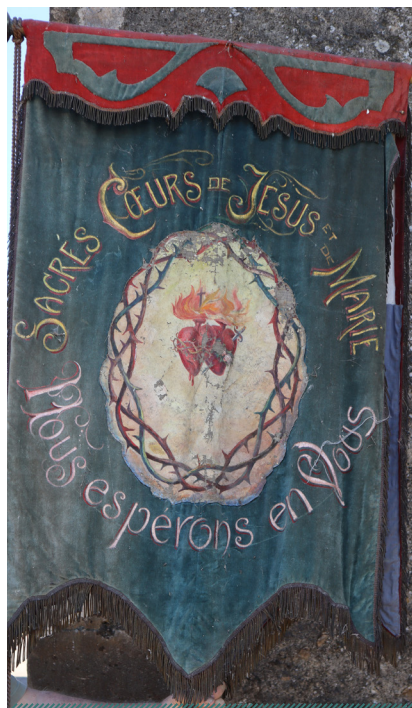 SACRÉS CŒURS DE JÉSUS ET DE MARIE
Nous espérons en Vous